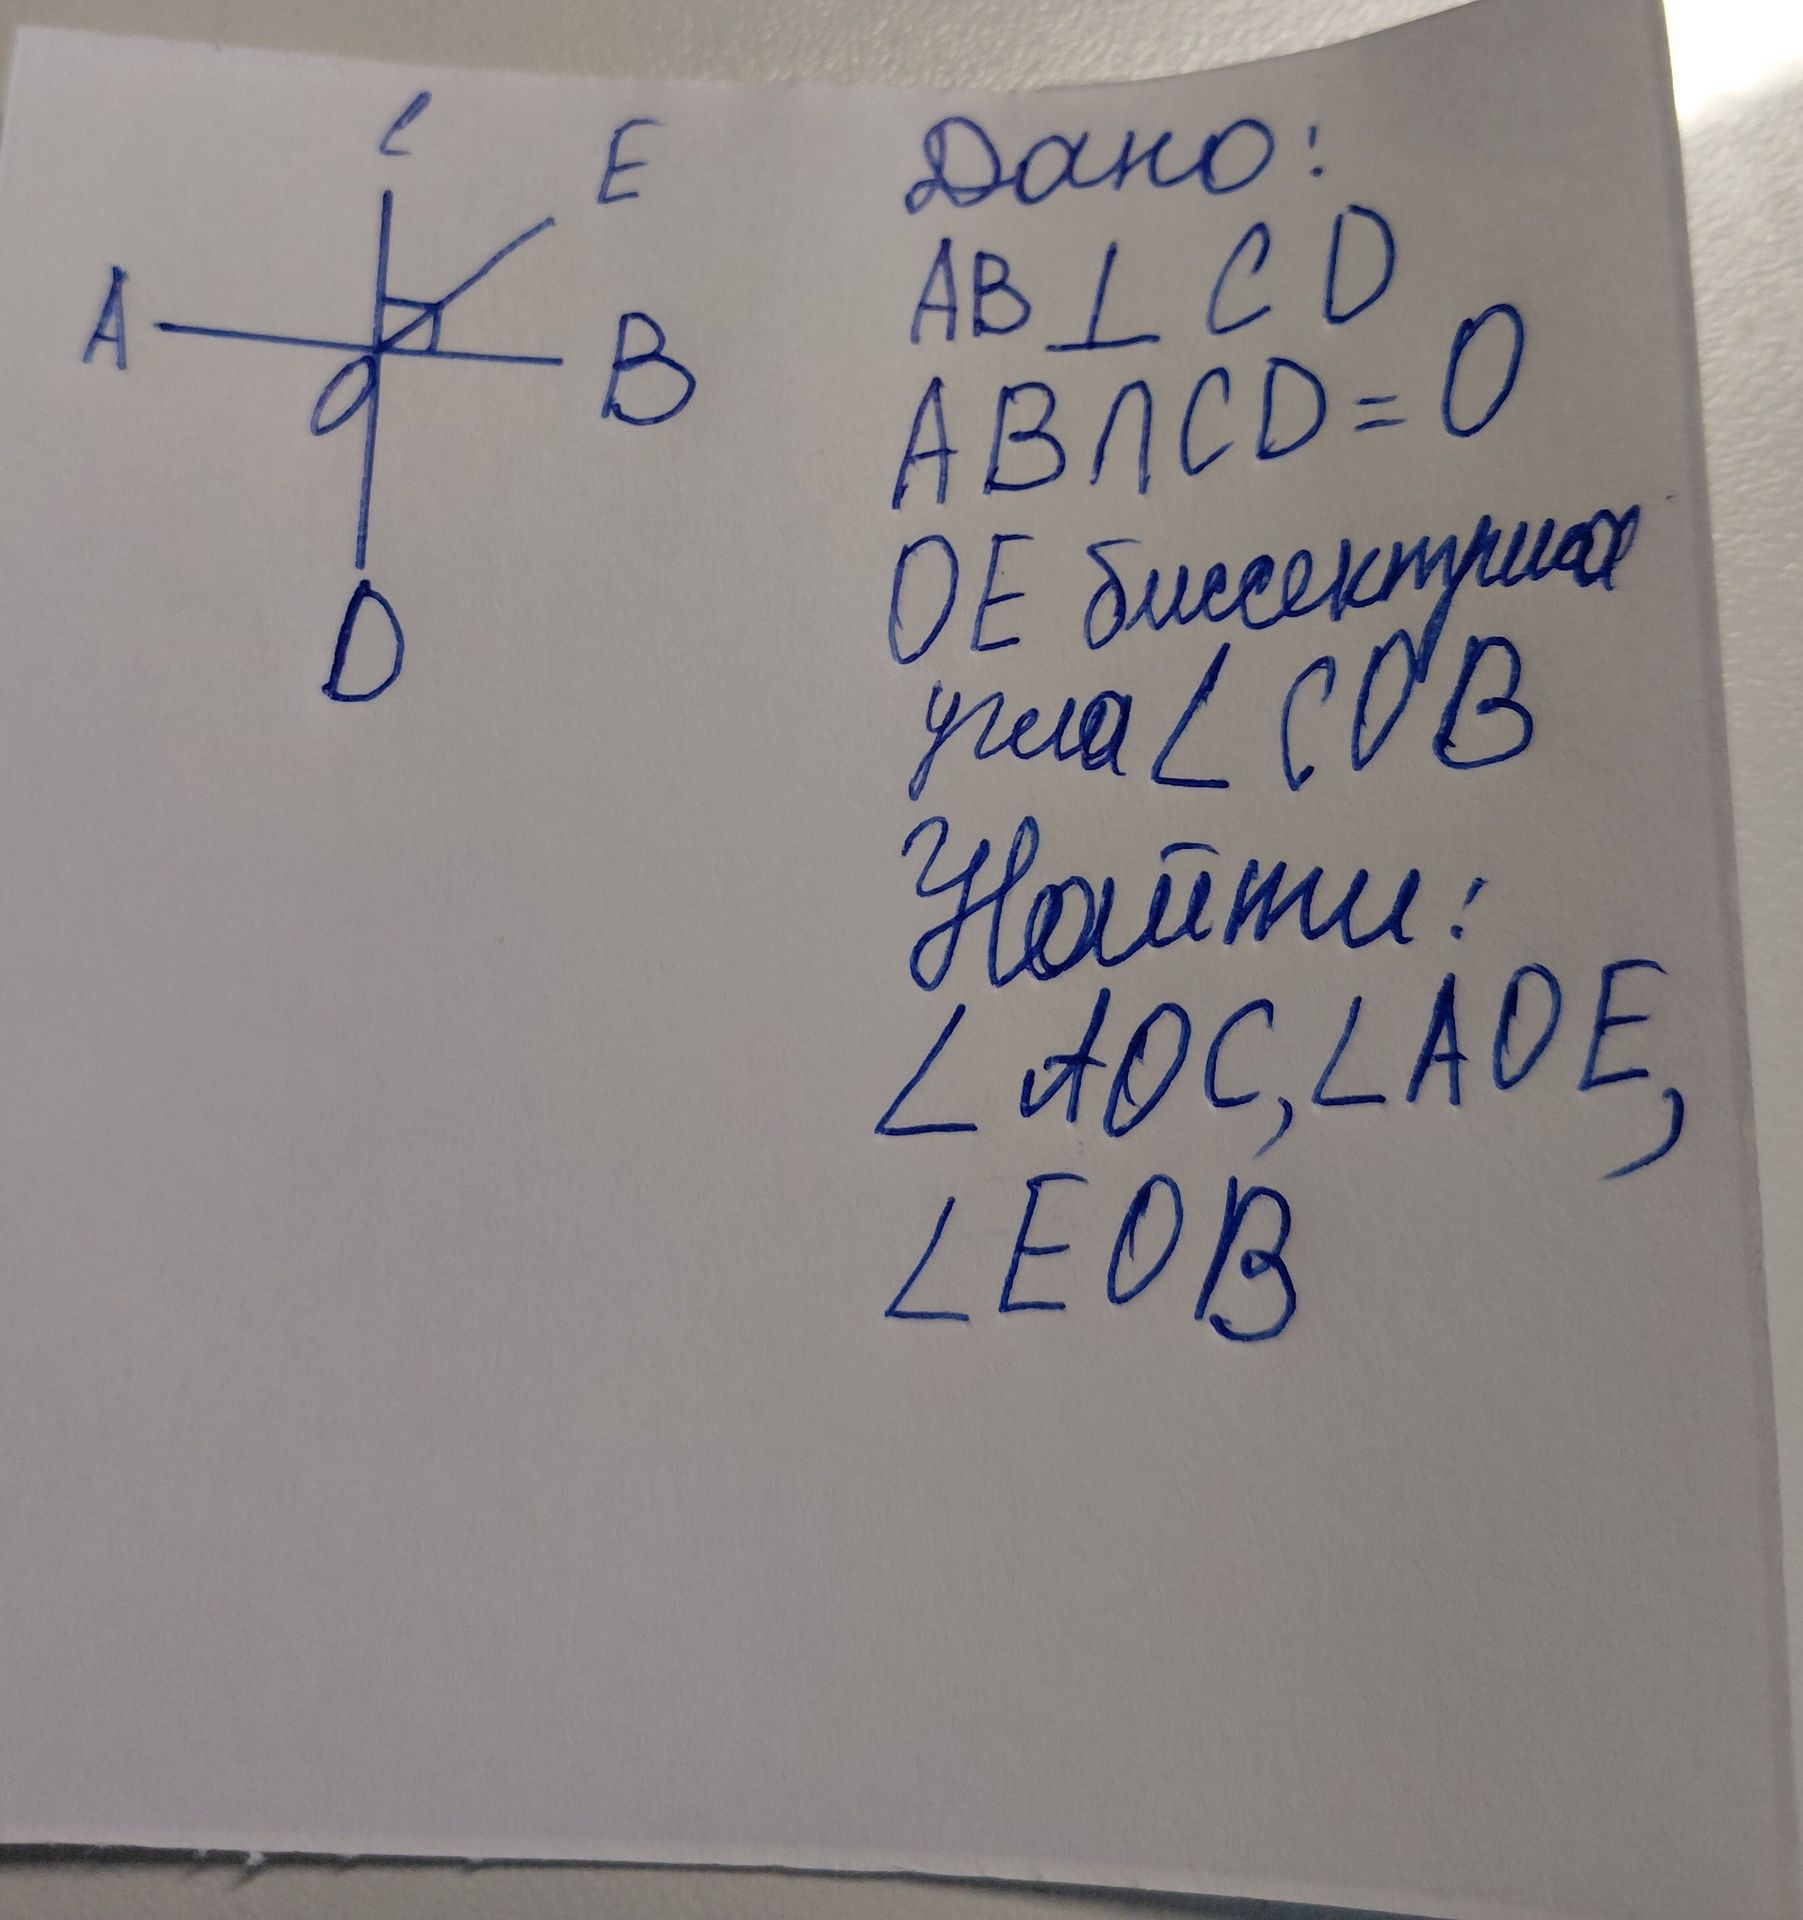 C
E
A
B
O
D
Дано:
AB ⊥ CD
AB ∩ CD = O
OE биссектриса
угла ∠ COB
Найти:
∠ AOC, ∠ AOE,
∠ EOB